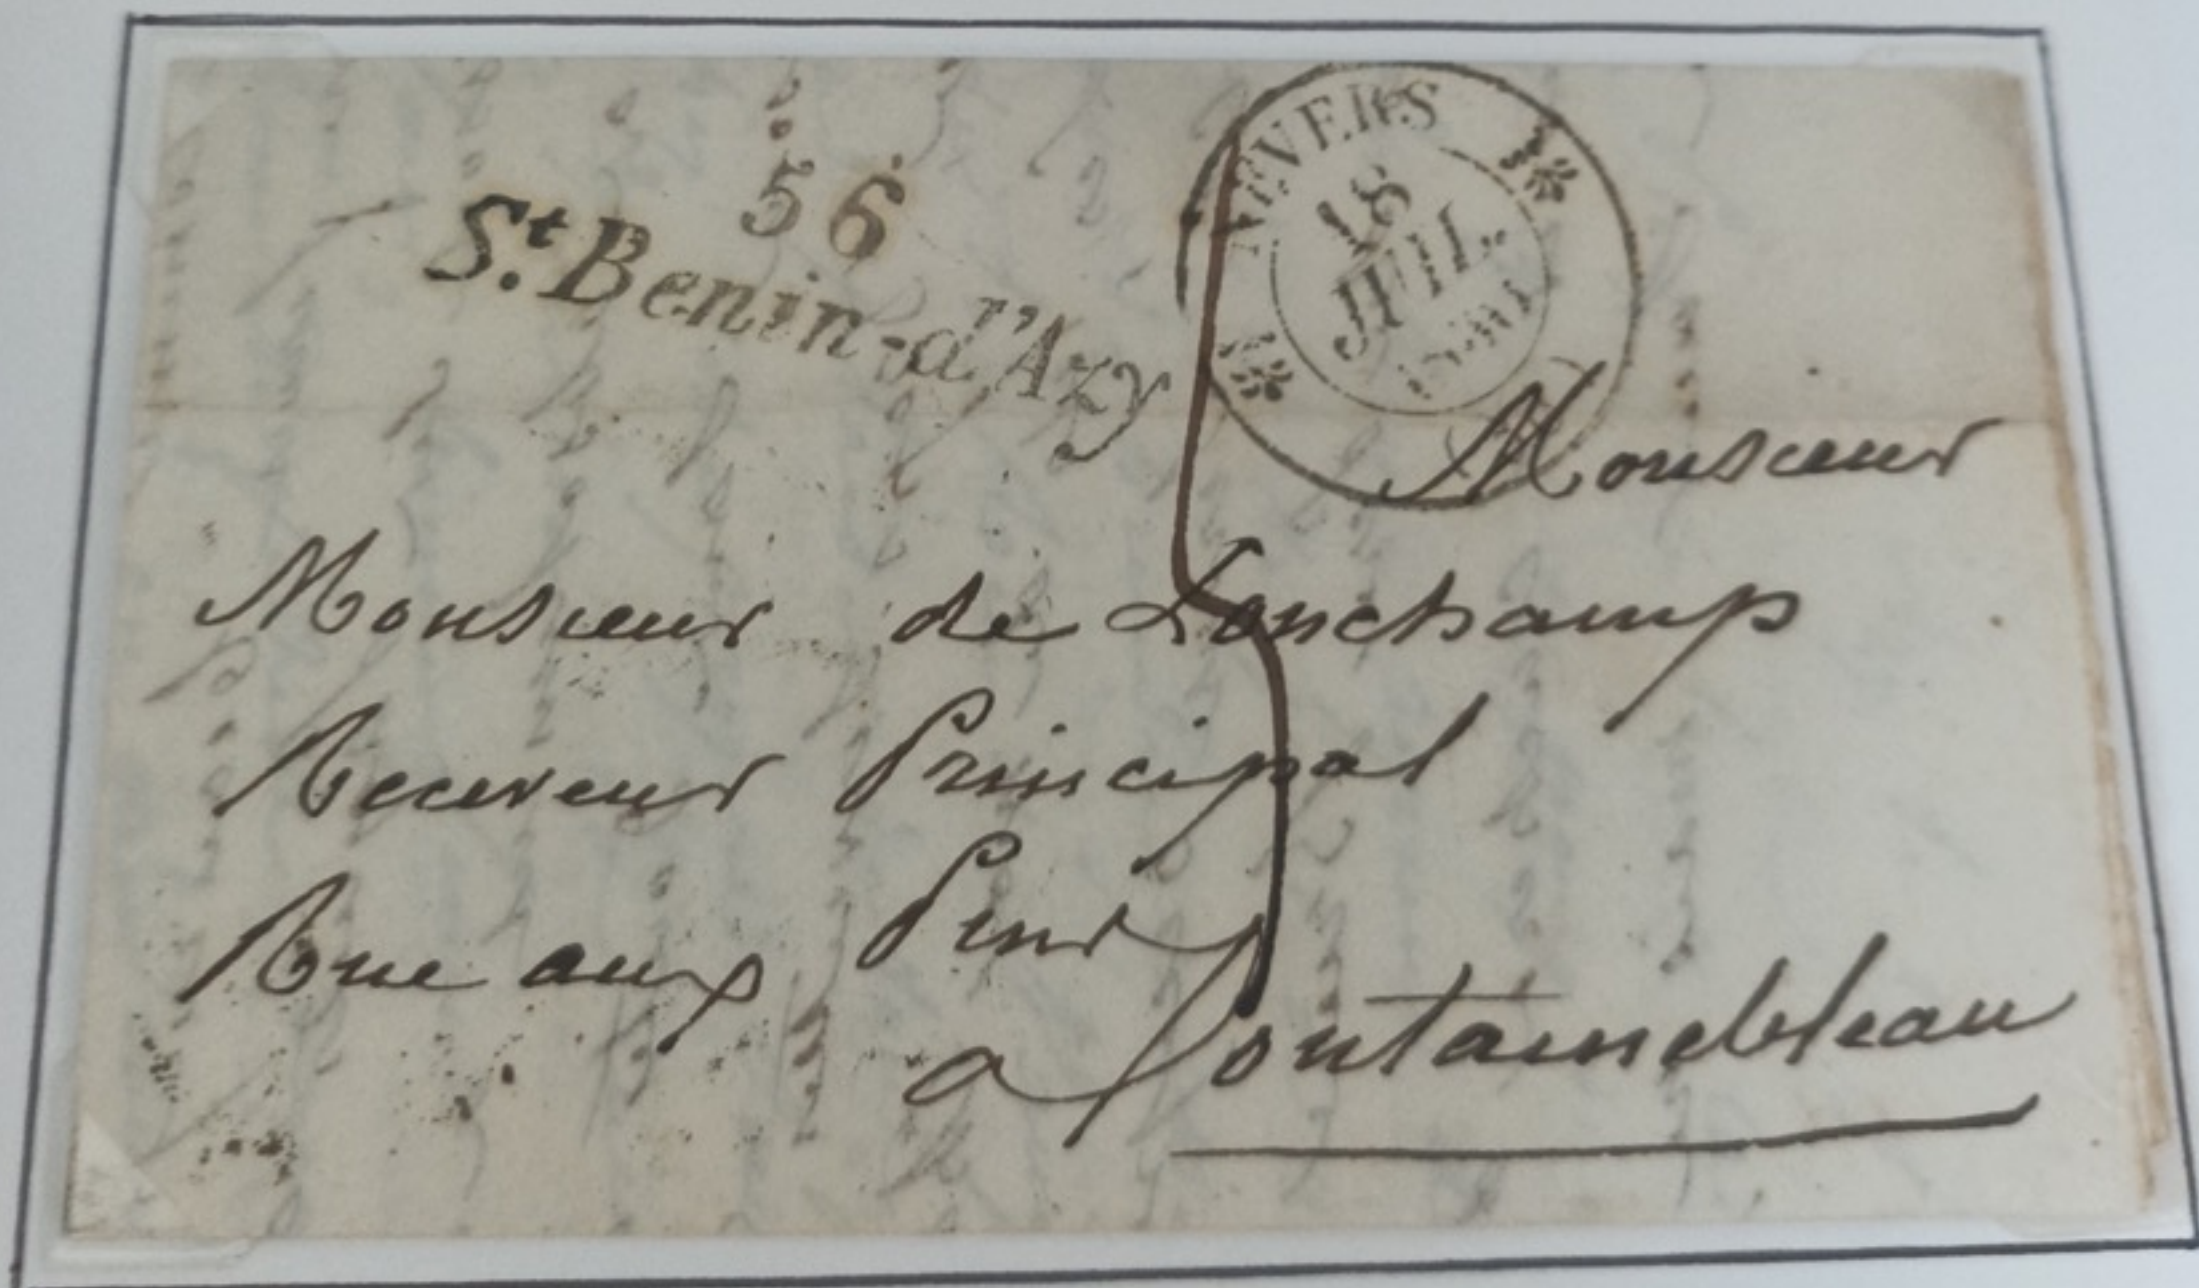 56
St. Benin-d'Azy
NEVERS
18
JUIL.
Monsieur
Monsieur de Lonchamp
Receveur Principal
Rue aux
a fontainebleau